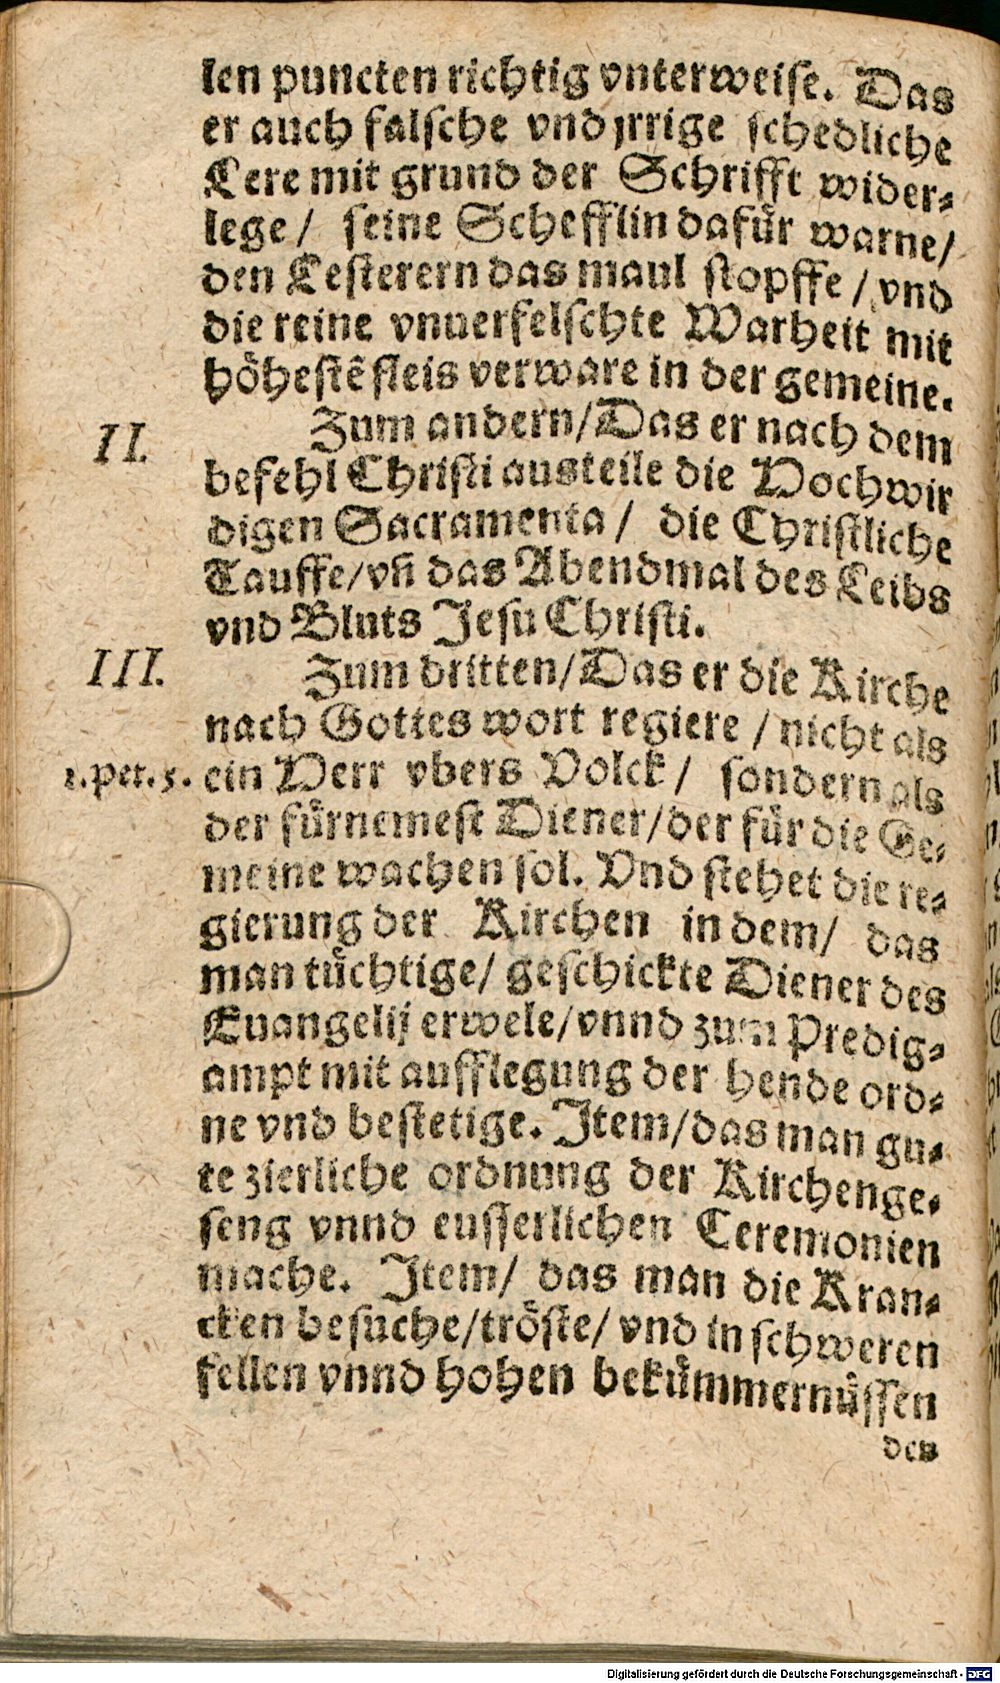 len puncten richtig vnterweise. Das
er auch falsche vnd jrrige schedliche
Lere mit grund der Schrifft wider⸗
lege / seine Schefflin dafür warne/
den Lesterern das maul stopffe / vnd
die reine vnuerfelschte Warheit mit
höhestē fleis verware in der gemeine.
II. Zum andern/Das er nach dem
befehl Christi austeile die Hochwir
digen Sacramenta / die Christliche
Tauffe/vn̄ das Abendmal des Leibs
vnd Bluts Jesu Christi.
III. Zum dritten/Das er die Kirche
nach Gottes wort regiere / nicht als
1. Pet. 5. ein Herr vbers Volck / sondern als
der fürnemest Diener/der für die Ge⸗
meine wachen sol. Vnd stehet die re⸗
gierung der Kirchen in dem/ das
man tüchtige/ geschickte Diener des
Euangelij erwele/vnnd zum Predig⸗
ampt mit aufflegung der hende ord⸗
ne vnd bestetige. Item/das man gu⸗
te zierliche ordnung der Kirchenge⸗
seng vnnd eusserlichen Ceremonien
mache. Item/ das man die Kran⸗
cken besuche/tröste/ vnd in schweren
fellen vnnd hohen bekümmernüssen
den
Digitalisierung gefördert durch die Deutsche Forschungsgemeinschaft - DFG